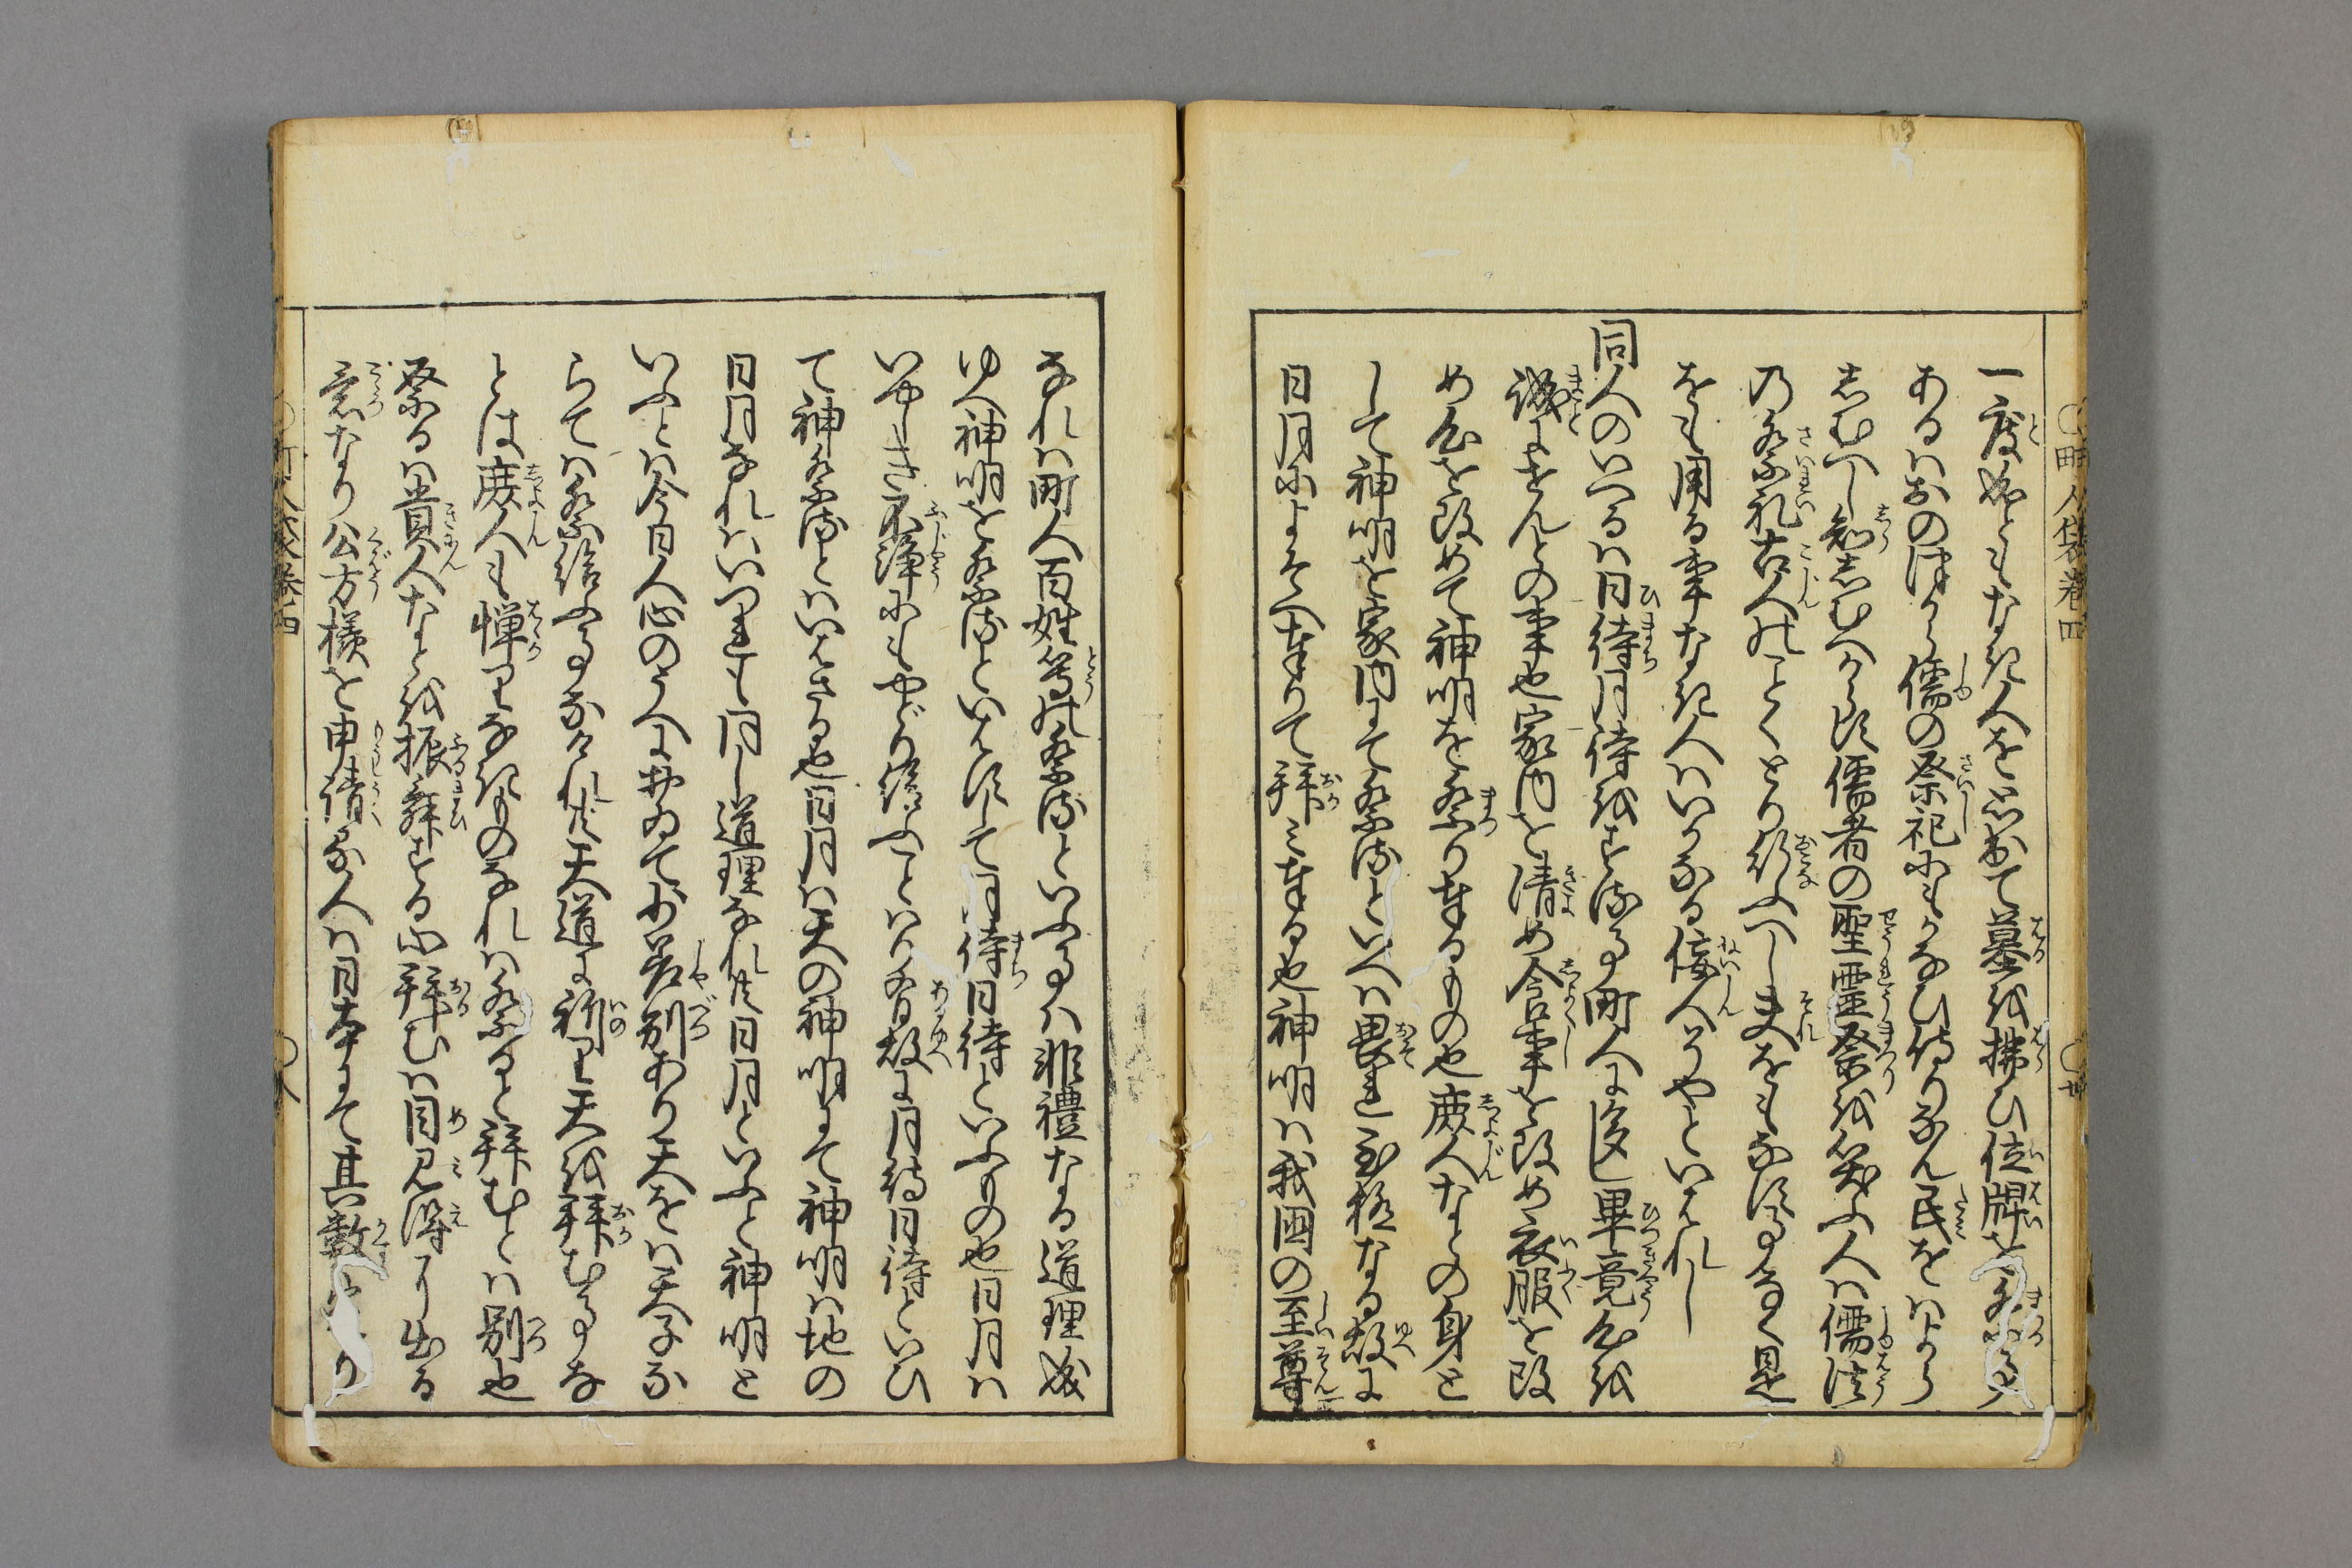 町人袋巻四
一度成ともなき人を思出て墓を拂ひ位牌を祭る事
あるはおのづから儒の祭祀にもかなひ侍りなん民をはより
しむへし知しむへからず儒者の聖霊祭を笑ふ人は儒法
の祭礼古人のことくとり行ふへし夫をもなす事なく是
をも用る事なき人はいかなる佞人そやといはれし
同人のいへるは日待月待をする事町人に深し畢竟心を
誠にせんとの事也家内を清め食事を改め衣服を改
め心を改めて神明を祭り奉るもの也庶人なとの身と
して神明を家内にて祭るといへは畏れ至極なる故に
日月によそへ奉りて拝み奉る也神明は我国の至尊
なれは町人百姓等の祭るといふ事は非禮なる道理成
ゆへ神明を祭るといはずして月待日待といふもの也日月は
いやしき不浄にもやどり給ふことはり有故に月待日待といひ
て神祭るとはいはさる也日月は天の神明にて神明は地の
日月なれはいつれも同し道理なれ共日月といふと神明と
いふとは今日人心のうへにおゐて少差別あり天をは天子な
らては祭給ふ事なけれ共天道に祈り天を拝む事な
とは庶人も憚りなきものなれは祭ると拝むとは別也
祭るは貴人なとを振舞するの心拝むは目見得に出る
意なり公方様を申請る人は日本にて其数
町人袋巻四